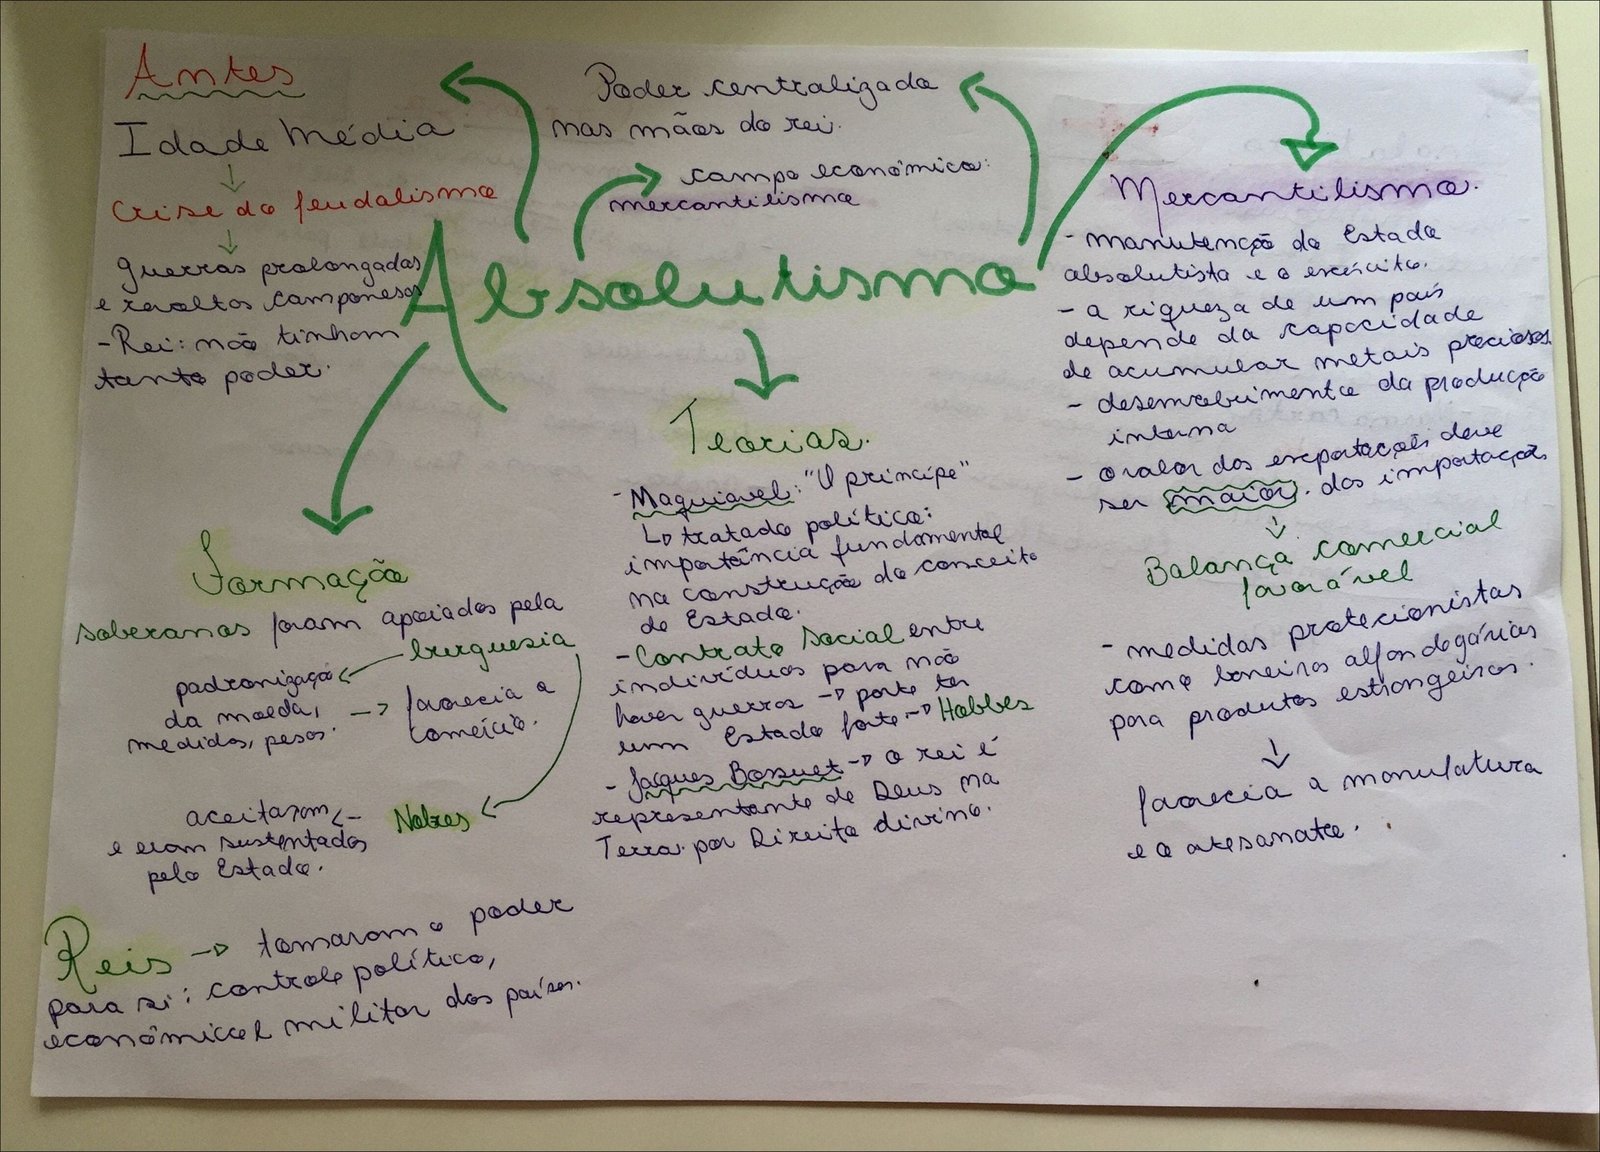 Antes
Idade Média
Crise do feudalismo
guerras prolongadas
e revoltas camponesas
- Rei: não tinham
tanto poder.
Poder centralizado
nas mãos do rei.
campo econômico:
mercantilismo
Absolutismo
Formação
soberanos foram apoiados pela
burguesia
padronização
da moeda,
medidas, pesos.
favorecia o
comércio.
Nobres
aceitaram
e eram sustentados
pelo Estado.
Reis → tomaram o poder
para si: controle político,
econômico e militar dos países.
Teorias.
- Maquiavel: "O príncipe"
↳ tratado político:
importância fundamental
na construção do conceito
de Estado.
- Contrato Social entre
indivíduos para não
haver guerras → pacto ter
um Estado forte → Hobbes
- Jacques Bossuet → o rei é
representante de Deus na
Terra por Direito divino.
Mercantilismo.
- manutenção do Estado
absolutista e o exército.
- a riqueza de um país
depende da capacidade
de acumular metais preciosos
- desenvolvimento da produção
interna
- o valor das exportações deve
ser maior. das importações
Balança comercial
favorável
- medidas protecionistas
como barreiras alfandegárias
para produtos estrangeiros.
favorecia a manufatura
e o artesanato.